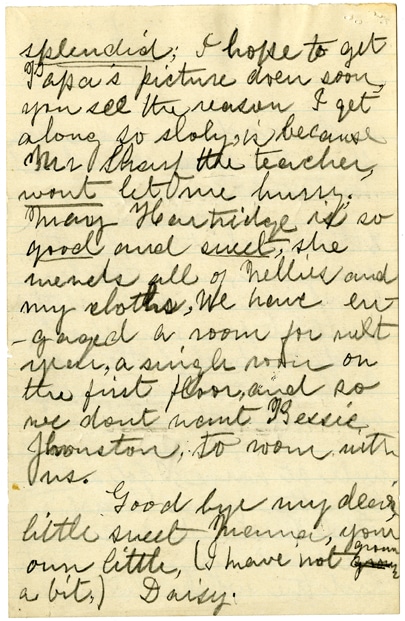 splendid; I hope to get
Papa's picture doen soon,
you see the reason I get
along so sloly, is because
Mr Sharf the teacher,
wont let me hurry.
Mary Hartridge is so
good and sweet, she
mends all of Nellies and
my cloths, We have en-
-gaged a room for next
year, a single room on
the first floor, and so
we dont want Bessie
Jhonston, to room with
us.
Good bye my dear,
little sweet Mamma, your
own little, (I have not grown
a bit,) Daisy.